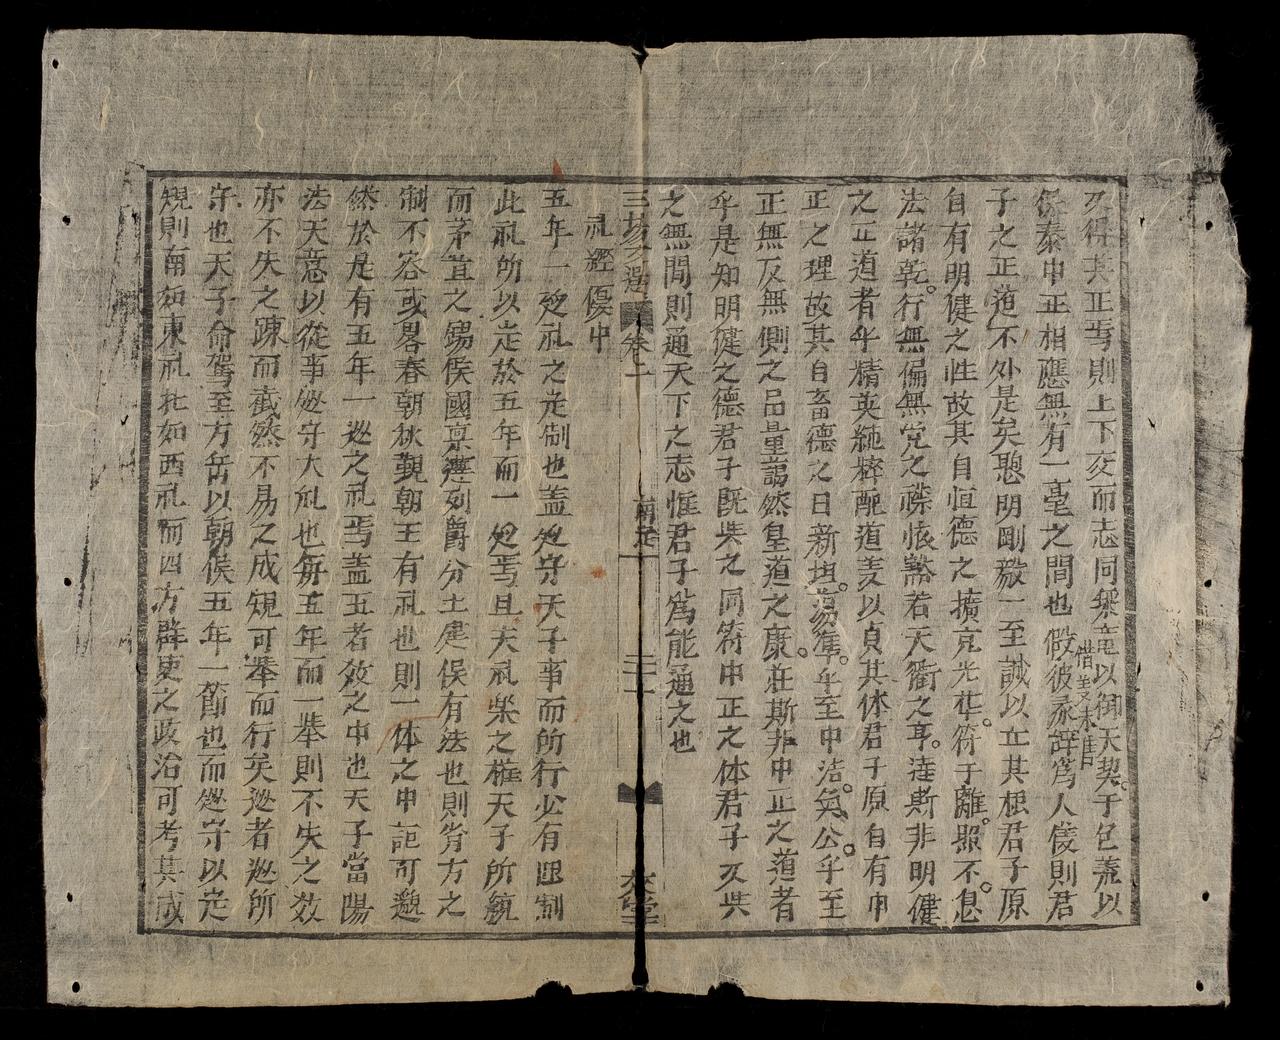 又得其正焉則上下交而志同乘竜以御天契于包荒以
保泰中正相應無有一毫之間也假彼彖辞為人僾則君
惜𢧐未隹
子之正道不外是矣聦明剛毅一至誠以立其根君子原
自有明健之性故其自恒德之擴充光在符于離照不息
法諸乾行無偏無党之襟懐豁若天衢之亨逹斯非明健
之正道者乎精英純粹配道義以貞其体君子原自有中
正之理故其自畜德之日新坦蕩準乎至中浩氣公乎至
正無反無側之品量藹然皇道之康荘斯非中正之道者
乎是知明健之德君子既㒷之同符中正之体君子又㒷
之無間則通天下之志惟君子為能通之也
三塲文選 卷二 南定 文堂
礼經 僾中
五年一廵礼之㝎制也盖廵守天子事而所行必有限制
此礼所以㝎於五年而一廵焉且夫礼楽之権天子所統
而茅苴之錫侯國稟遵列爵分土建侯有法也則肯方之
制不容或畧春朝秋覲朝王有礼也則一体之中詎可邈
然於是有五年一廵之礼焉盖五者效之中也天子當陽
法天意以從事廵守大礼也毎五年而一舉則不失之效
亦不失之疎而截然不易之成䂓可舉而行矣廵者廵所
守也天子命駕至方岳以朝侯五年一節也而廵守以㝎
䂓則南如東礼北如西礼而四方群吏之政治可考其成